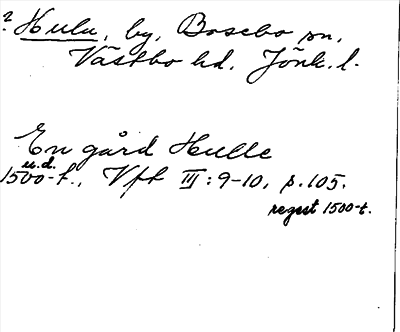 ? Hulu, by, Bosebo sn,
Västbo hd. Jönk. l.
En gård Hulle
u.d.
1500-t., Vft III: 9-10, s. 105.
regest 1500-t.